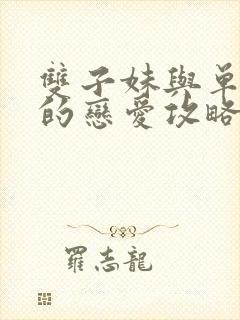 雙子妹與單
的戀愛攻略
羅志龍